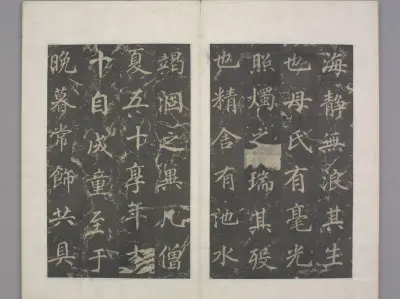 海靜無浪其生
也母氏有毫光
照燭之瑞其歿
也精舍有池水
竭涸之異凡僧
夏五十享年
十自成童至于
晚暮常飾共具